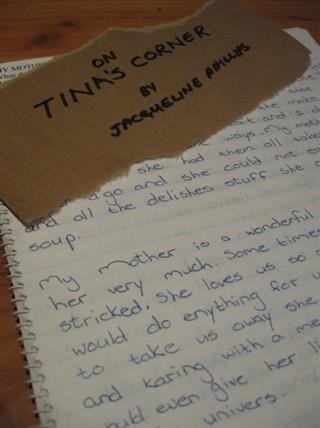 ON
TINA'S CORNER
BY
JACQUELINE PHILLIPS
MY MOTHE
What
the make
wait and I
ways. My moth
she had them all take
ago and she could not e
and all the delishes stuff she c
soup.
My mother is a wonderful
her very much. Some times
stricked. She loves us so m
would do enything for u
to take us away she
and karing with a me
ould even give her li
univers.